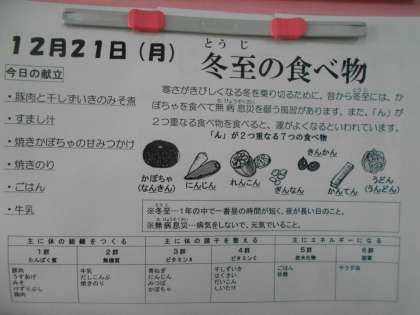 12月21日（月）
とうじ
冬至の食べ物
今日の献立
・豚肉と干しずいきのみそ煮
・すまし汁
・焼きかぼちゃの甘みつかけ
・焼きのり
・ごはん
・牛乳
寒さがきびしくなる冬を乗り切るために、昔から冬至には、か
ぼちゃを食べて無病息災を願う風習があります。また、「ん」が
２つ重なる食べ物を食べると、運がよくなるといわれています。
「ん」が２つ重なる７つの食べ物
かぼちゃ
(なんきん)
にんじん
れんこん
ぎんなん
きんかん
かんてん
うどん
(うんどん)
※冬至…１年の中で一番昼の時間が短く、夜が長い日のこと。
※無病息災…病気をしないで、元気でいること。
主に体の組織をつくる
主に体の調子を整える
主にエネルギーになる
1群
2群
3群
4群
5群
6群
たんぱく質
無機質
ビタミンA
ビタミンC
炭水化物
脂質
豚肉
うすあげ
みそ
けずりぶし
鶏肉
牛乳
だしこんぶ
焼きのり
青ねぎ
にんじん
みつば
かぼちゃ
干しずいき
はくさい
だいこん
しいたけ
ごはん
砂糖
サラダ油